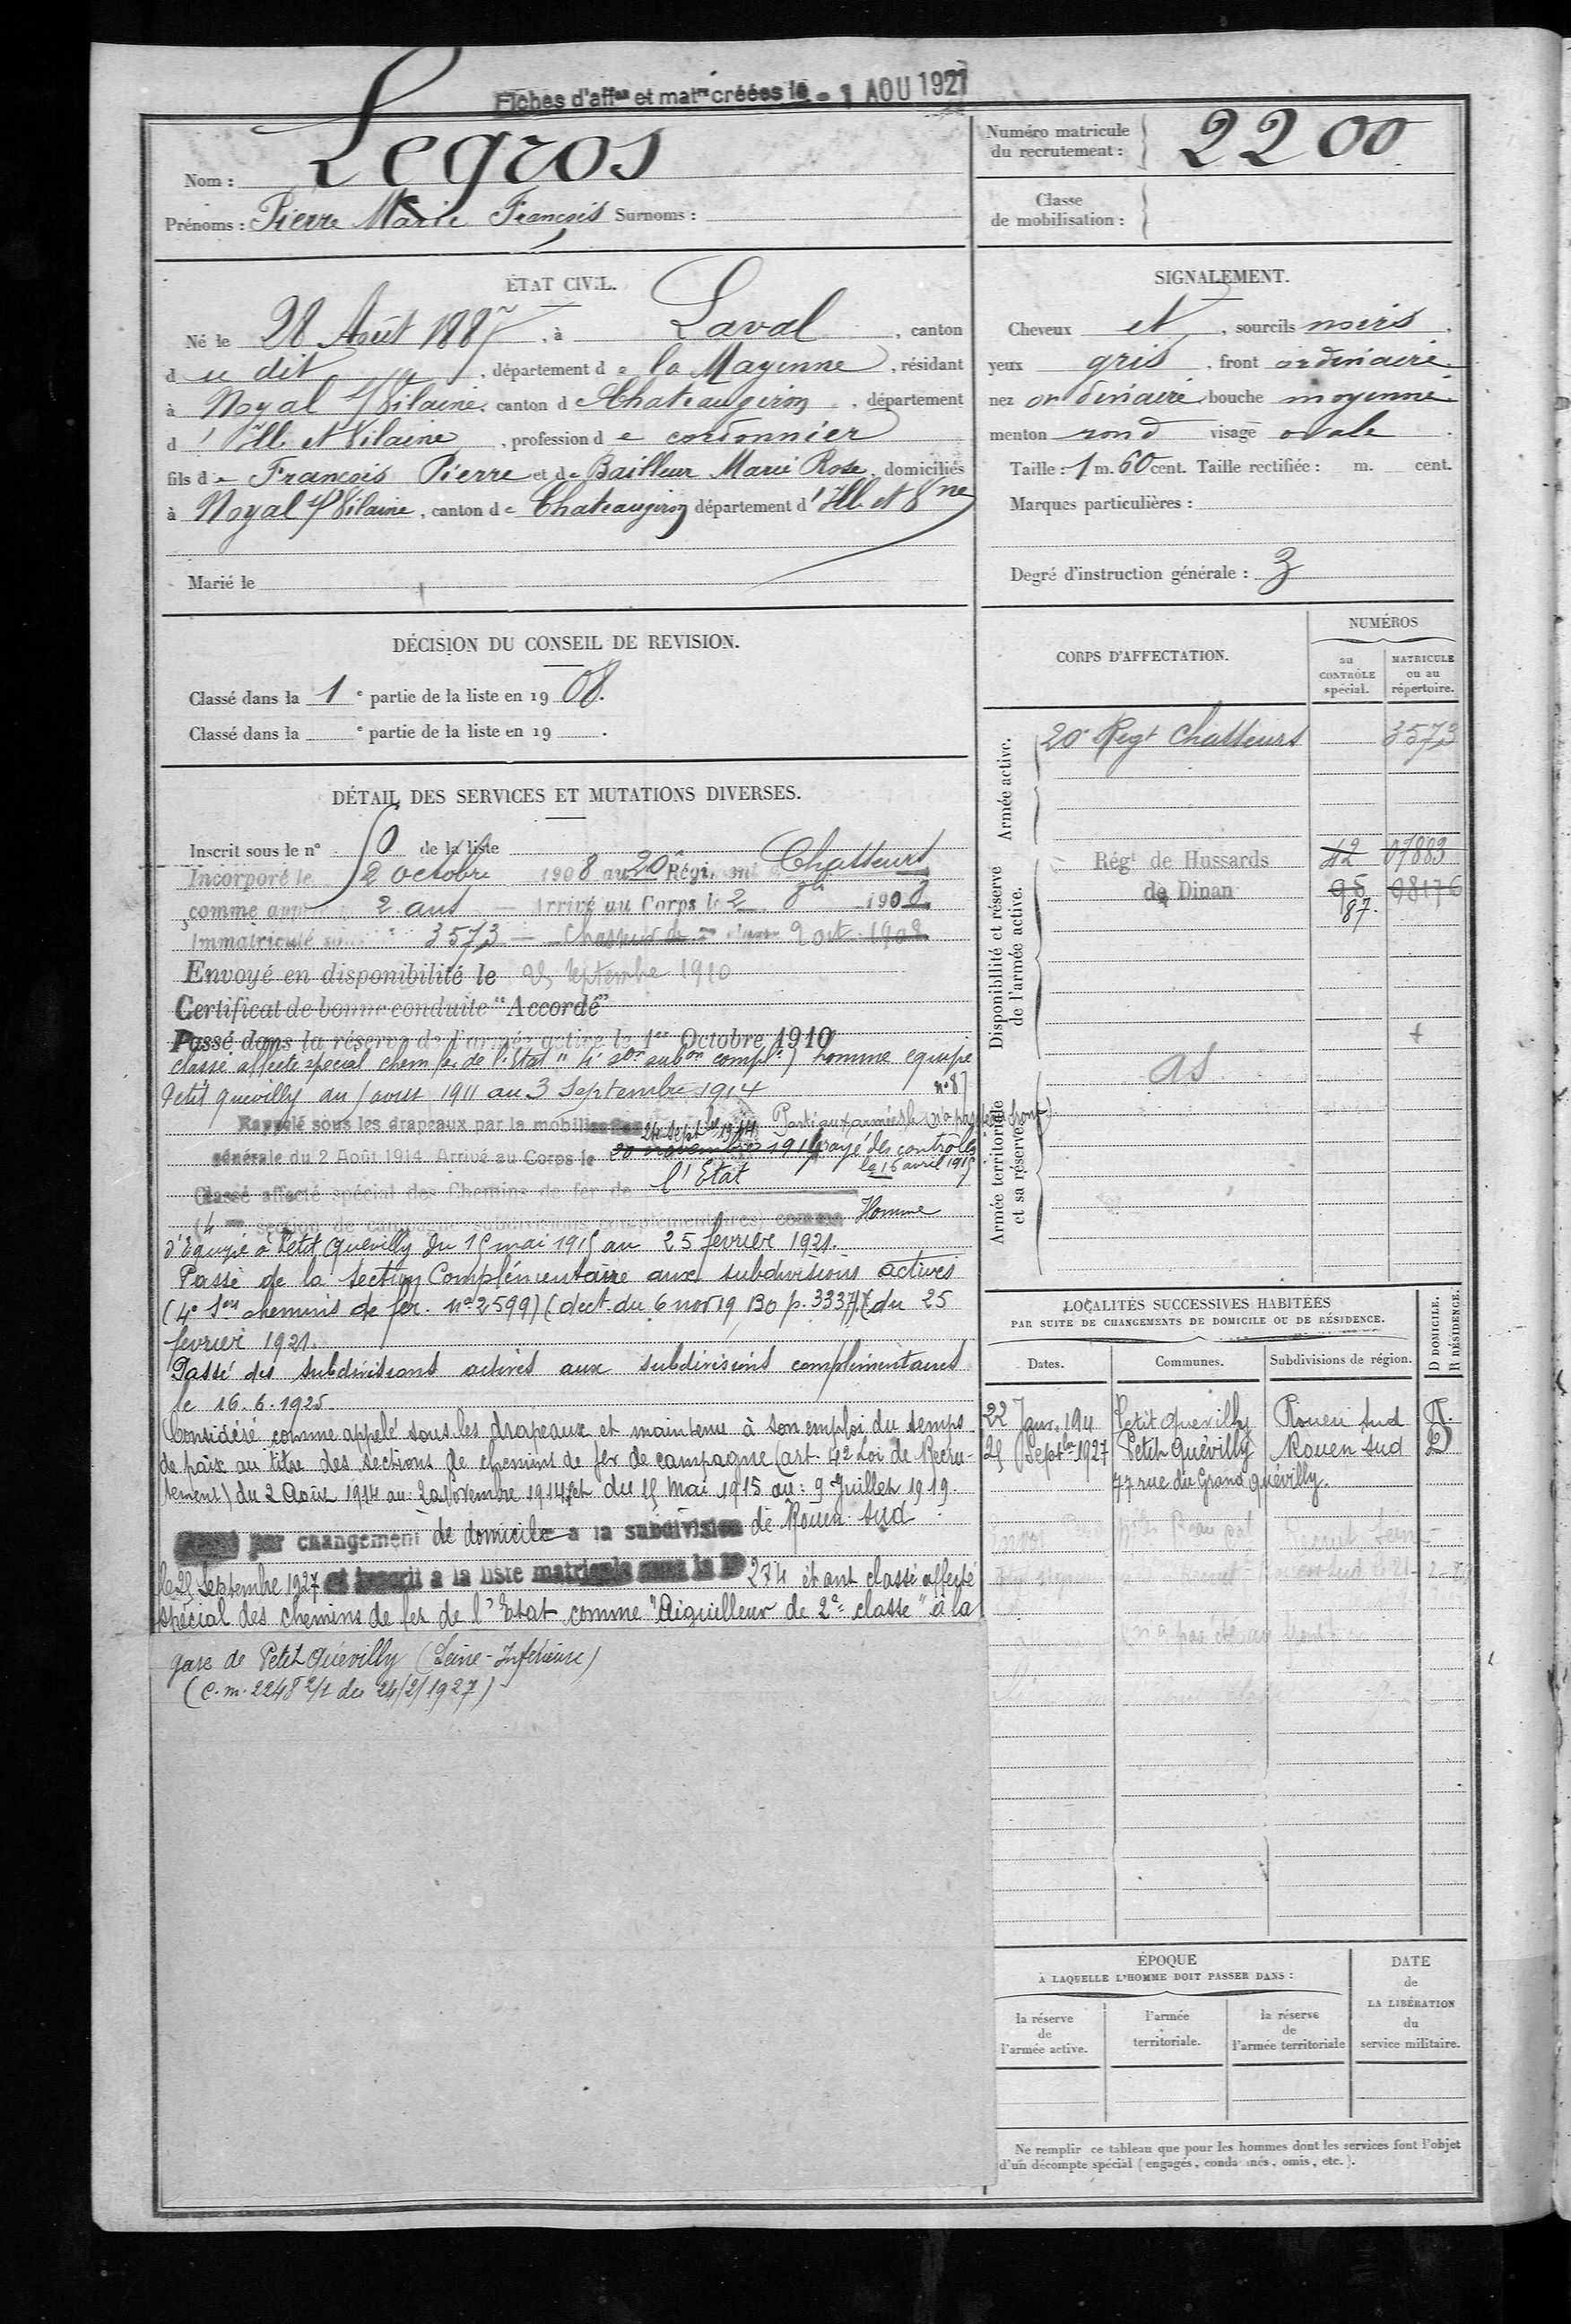 Fiches d'aff^on et mat^re créées le - 1 AOU 1927
Nom : Legros
Prénoms : Pierre Marie François Surnoms :
Numéro matricule
du recrutement : 2200
Classe
de mobilisation :
ÉTAT CIVIL.
Né le 28 Août 1887, à Laval, canton
d u dit, département de la Mayenne, résidant
à Noyal s/Vilaine, canton d Chateaugiron, département
d'Ille et Vilaine, profession de cordonnier
fils de François Pierre et de Bailleur Marie Rose, domiciliés
à Noyal s/Vilaine, canton de Chateaugiron département d'Ille et V^ne
Marié le
SIGNALEMENT.
Cheveux et, sourcils noirs,
yeux gris, front ordinaire
nez ordinaire, bouche moyenne
menton rond visage ovale.
Taille : 1 m. 60 cent. Taille rectifiée : m. cent.
Marques particulières :
Degré d'instruction générale : 3
DÉCISION DU CONSEIL DE REVISION.
Classé dans la 1^e partie de la liste en 1908.
Classé dans la ^e partie de la liste en 19 .
DÉTAIL DES SERVICES ET MUTATIONS DIVERSES.
Inscrit sous le n° de la liste
Incorporé le 2 octobre 1908 au 20^e Régiment Chasseurs
comme 2 ans — Arrivé au Corps le 2 1908
Immatriculé 3573 — Chasseur de 2 oct. 1908
Envoyé en disponibilité le 25 septembre 1910
Certificat de bonne conduite "Accordé"
Passé dans la réserve de l'armée active le 1^er Octobre 1910
classé affecté spécial chem fer de l'état " 4^e s^on sub^on compl^re) homme équipe
Petit Quevilly du 1 avril 1911 au 3 Septembre 1914 n° 87
Rappelé sous les drapeaux par la mobilisation Parti aux armées le (n'a pas été au front)
24 sept^bre 1914
générale du 2 Août 1914. Arrivé au Corps le 20 novembre 1914 rayé des contrôles
le 15 avril 1915
Classé affecté spécial des Chemins de fer de l'Etat
(4^me section de campagne subdivisions complémentaires) comme Homme
d'Equipe à Petit Quevilly du 15 mai 1915 au 25 février 1921.
Passé de la section Complémentaire aux subdivisions actives
(4^e S^on chemins de fer. n° 2599) (dect. du 6 nov 19 BO p. 3337) (du 25
février 1921.
Passé des subdivisions actives aux subdivisions complémentaires
le 16.6.1925
Considéré comme appelé sous les drapeaux et maintenu à son emploi du temps
de paix au titre des sections de chemins de fer de campagne (art. 42 Loi de Recru-
tement) du 2 Août 1914 au: 20 Novembre 1914 et du 15 Mai 1915 au: 9 Juillet 1919.
par changement de domicile à la subdivision de Rouen Sud
le 25 Septembre 1927 et inscrit à la liste matricule sous le N° 274 étant classé affecté
spécial des chemins de fer de l'Etat comme "Aiguilleur de 2^e classe" à la
gare de Petit Quévilly (Seine-Inférieure)
(C.m. 2248 2/1 du 24/2/1927)
CORPS D'AFFECTATION.
NUMÉROS
au
CONTRÔLE
spécial.
MATRICULE
ou au
répertoire.
Armée active.
20^e Reg^t Chasseurs 3573
Disponibilité et réserve
de l'armée active.
Rég^t de Hussards 42 07883
de Dinan 95 08176
87.
Armée territoriale
et sa réserve.
AS
LOCALITÉS SUCCESSIVES HABITÉES
PAR SUITE DE CHANGEMENTS DE DOMICILE OU DE RÉSIDENCE.
Dates. Communes. Subdivisions de région.
D DOMICILE.
R RÉSIDENCE.
22 Janv. 1911 Petit Quevilly Rouen Sud R.
25 Sept^bre 1927 Petit Quévilly Rouen Sud D
77 rue du Grand Quévilly.
ÉPOQUE
À LAQUELLE L'HOMME DOIT PASSER DANS :
la réserve
de
l'armée active.
l'armée
territoriale.
la réserve
de
l'armée territoriale
DATE
de
LA LIBÉRATION
du
service militaire.
Ne remplir ce tableau que pour les hommes dont les services font l'objet
d'un décompte spécial (engagés, condamnés, omis, etc.).